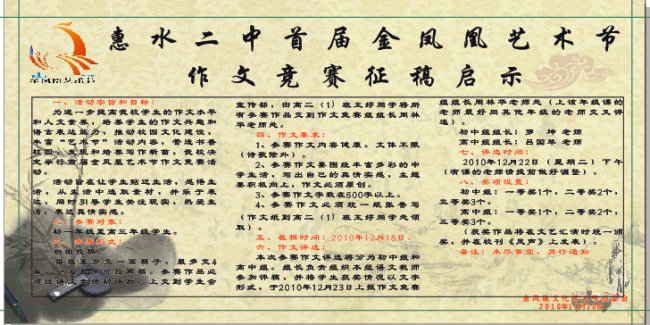 惠水二中首届金凤凰艺术节
作文竞赛征稿启示
金凤凰艺术节
一、活动宗旨和目标：
为进一步提高我校学生的作文水平
和人文素养，培养学生的作文兴趣和
语言表达能力，推动校园文化建设，
丰富“艺术节”活动内容，营造书香
校园，展现和培养写作新苗，我校决
定举行首届金凤凰艺术节作文竞赛活
动。
活动旨在让学生贴近生活，感悟生
活，从生活中选取素材，并乐于表
达，同时引导学生关注现实，热爱生
活，表达真情实感。
二、参赛对象：
初一年级至高三年级学生。
三、参赛形式：
自由投稿。
每班至少交一篇稿子，最多交4
须经语文老师初评后，上交到学生会
宣传部，由高二（1）班王婷同学将所
有参赛作品交到作文竞赛组组长周林
华老师处。
四、作文要求：
1、参赛作文内容健康，文体不限
（诗歌除外）。
2、参赛作文要围绕丰富多彩的中
学生活，写出自己的真情实感，主题
要积极向上，作文必须原创。
3、参赛作文字数在600字以上。
4、参赛作文必须统一纸张誊写
（作文纸到高二（1）班王婷同学处领
取）。
五、截稿时间：2010年12月18日。
六、作文评选：
本次参赛作文评选将分为初中组和
高中组。组长负责组织本组语文教师
参加评稿，并将学生获奖情况以文字
形式，于2010年12月23日上报作文竞赛
组组长周林华老师处（上该年级课的
老师最好用其他年级的老师交叉评
选）。
初中组组长：罗 坤 老师
高中组组长：吕国琴 老师
七、评选时间：
2010年12月22日（星期二）下午
（有课的老师请提前做好调整）。
八、奖项设置：
初中组：一等奖1个，二等奖2个，
三等奖3个。
高中组：一等奖1个，二等奖2个，
三等奖3个。
（获奖作品将在文艺汇演时统一颁
奖，并在校刊《凤声》上发表）。
备注：未尽事宜，另行通知
金凤凰文化艺术节组委会
2010年10月10日